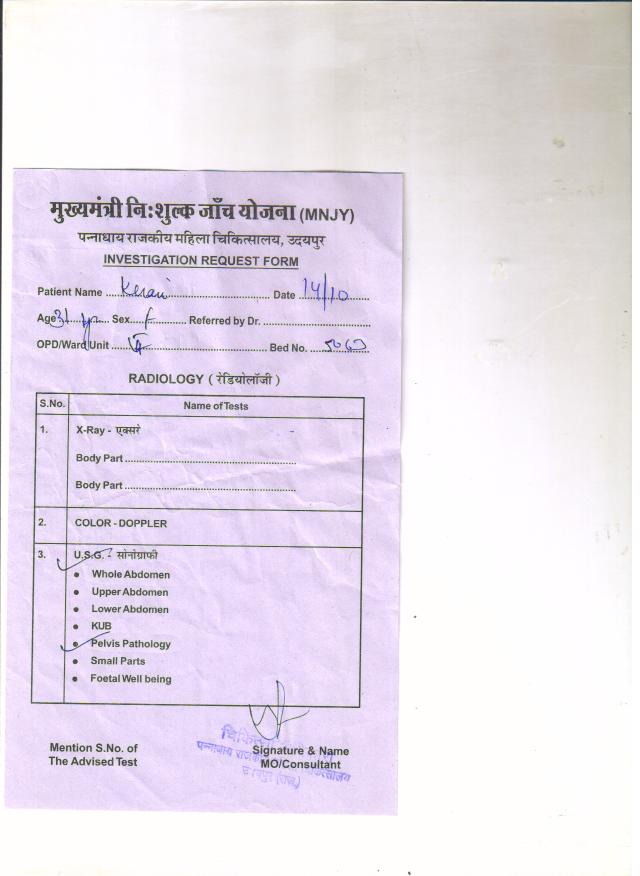 मुख्यमंत्री निःशुल्क जाँच योजना (MNJY)
पन्नाधाय राजकीय महिला चिकित्सालय, उदयपुर
INVESTIGATION REQUEST FORM
Patient Name ............ Date 14/10
Age 31 yr Sex f Referred by Dr. ............
OPD/Ward Unit ............ Bed No. ............
RADIOLOGY ( रेडियोलॉजी )
S.No. Name of Tests
1. X-Ray - एक्सरे
Body Part ............
Body Part ............
2. COLOR - DOPPLER
3. U.S.G. - सोनोग्राफी
• Whole Abdomen
• Upper Abdomen
• Lower Abdomen
• KUB
• Pelvis Pathology
• Small Parts
• Foetal Well being
Mention S.No. of
The Advised Test
Signature & Name
MO/Consultant